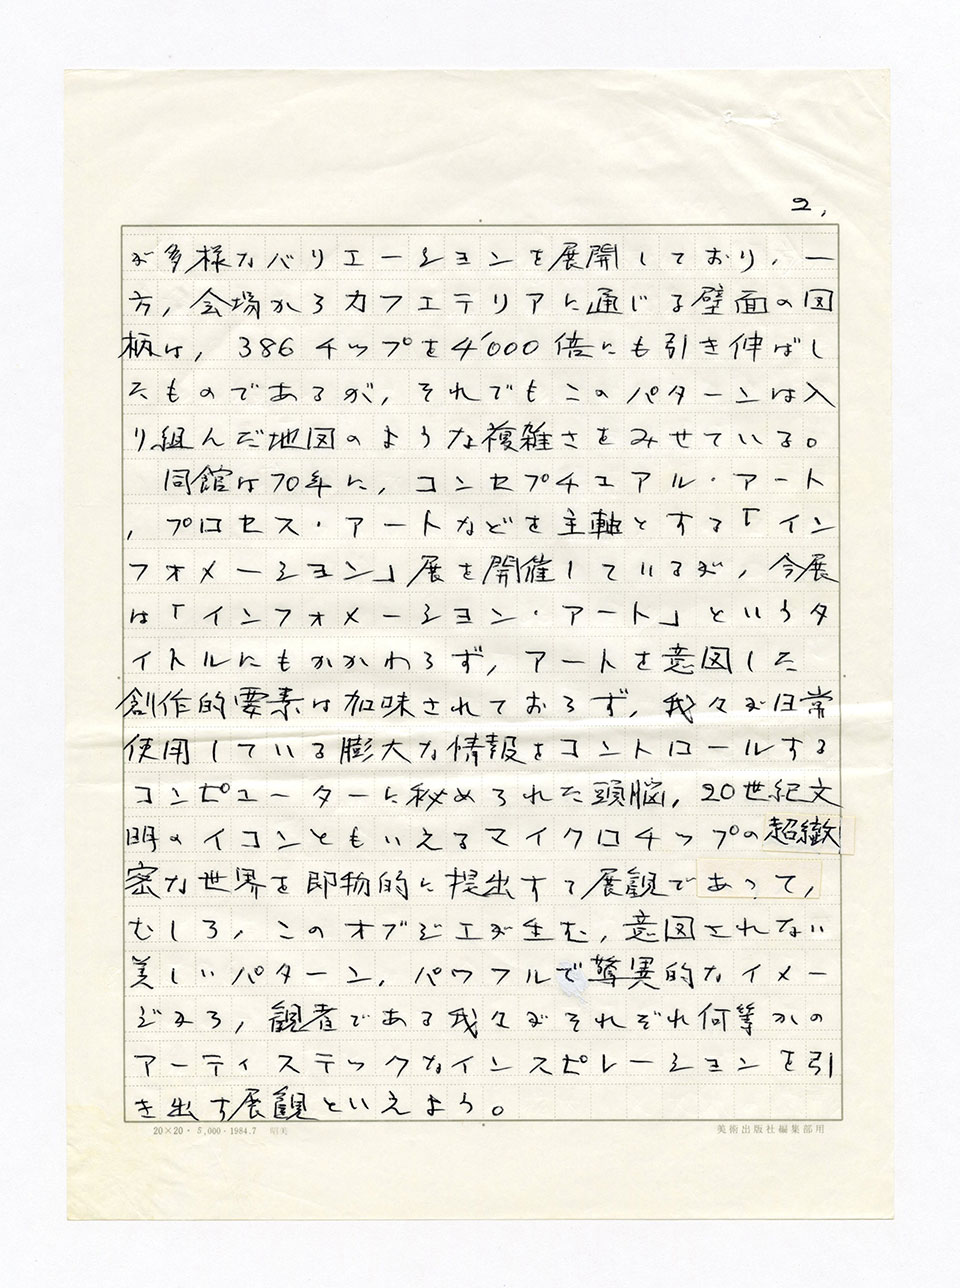 2,
が多様なバリエーションを展開しており、一
方、会場からカフェテリアに通じる壁面の図
柄は、386チップを4'000倍にも引き伸ばし
たものであるが、それでもこのパターンは入
り組んだ地図のような複雑さをみせている。
同館は70年に、コンセプチュアル・アート
、プロセス・アートなどを主軸とする「イン
フォメーション」展を開催しているが、今展
は「インフォメーション・アート」というタ
イトルにもかかわらず、アートを意図した
創作的要素は加味されておらず、我々が日常
使用している膨大な情報をコントロールする
コンピューターに秘められた頭脳、20世紀文
明のイコンともいえるマイクロチップの超緻
密な世界を即物的に提出すて展観であって、
むしろ、このオブジェが生む、意図されない
美しいパターン、パワフルで驚異的なイメー
ジから、観者である我々がそれぞれ何等かの
アーティスティックなインスピレーションを引
き出す展観といえよう。
20×20・5,000・1984.7 昭美
美術出版社編集部用